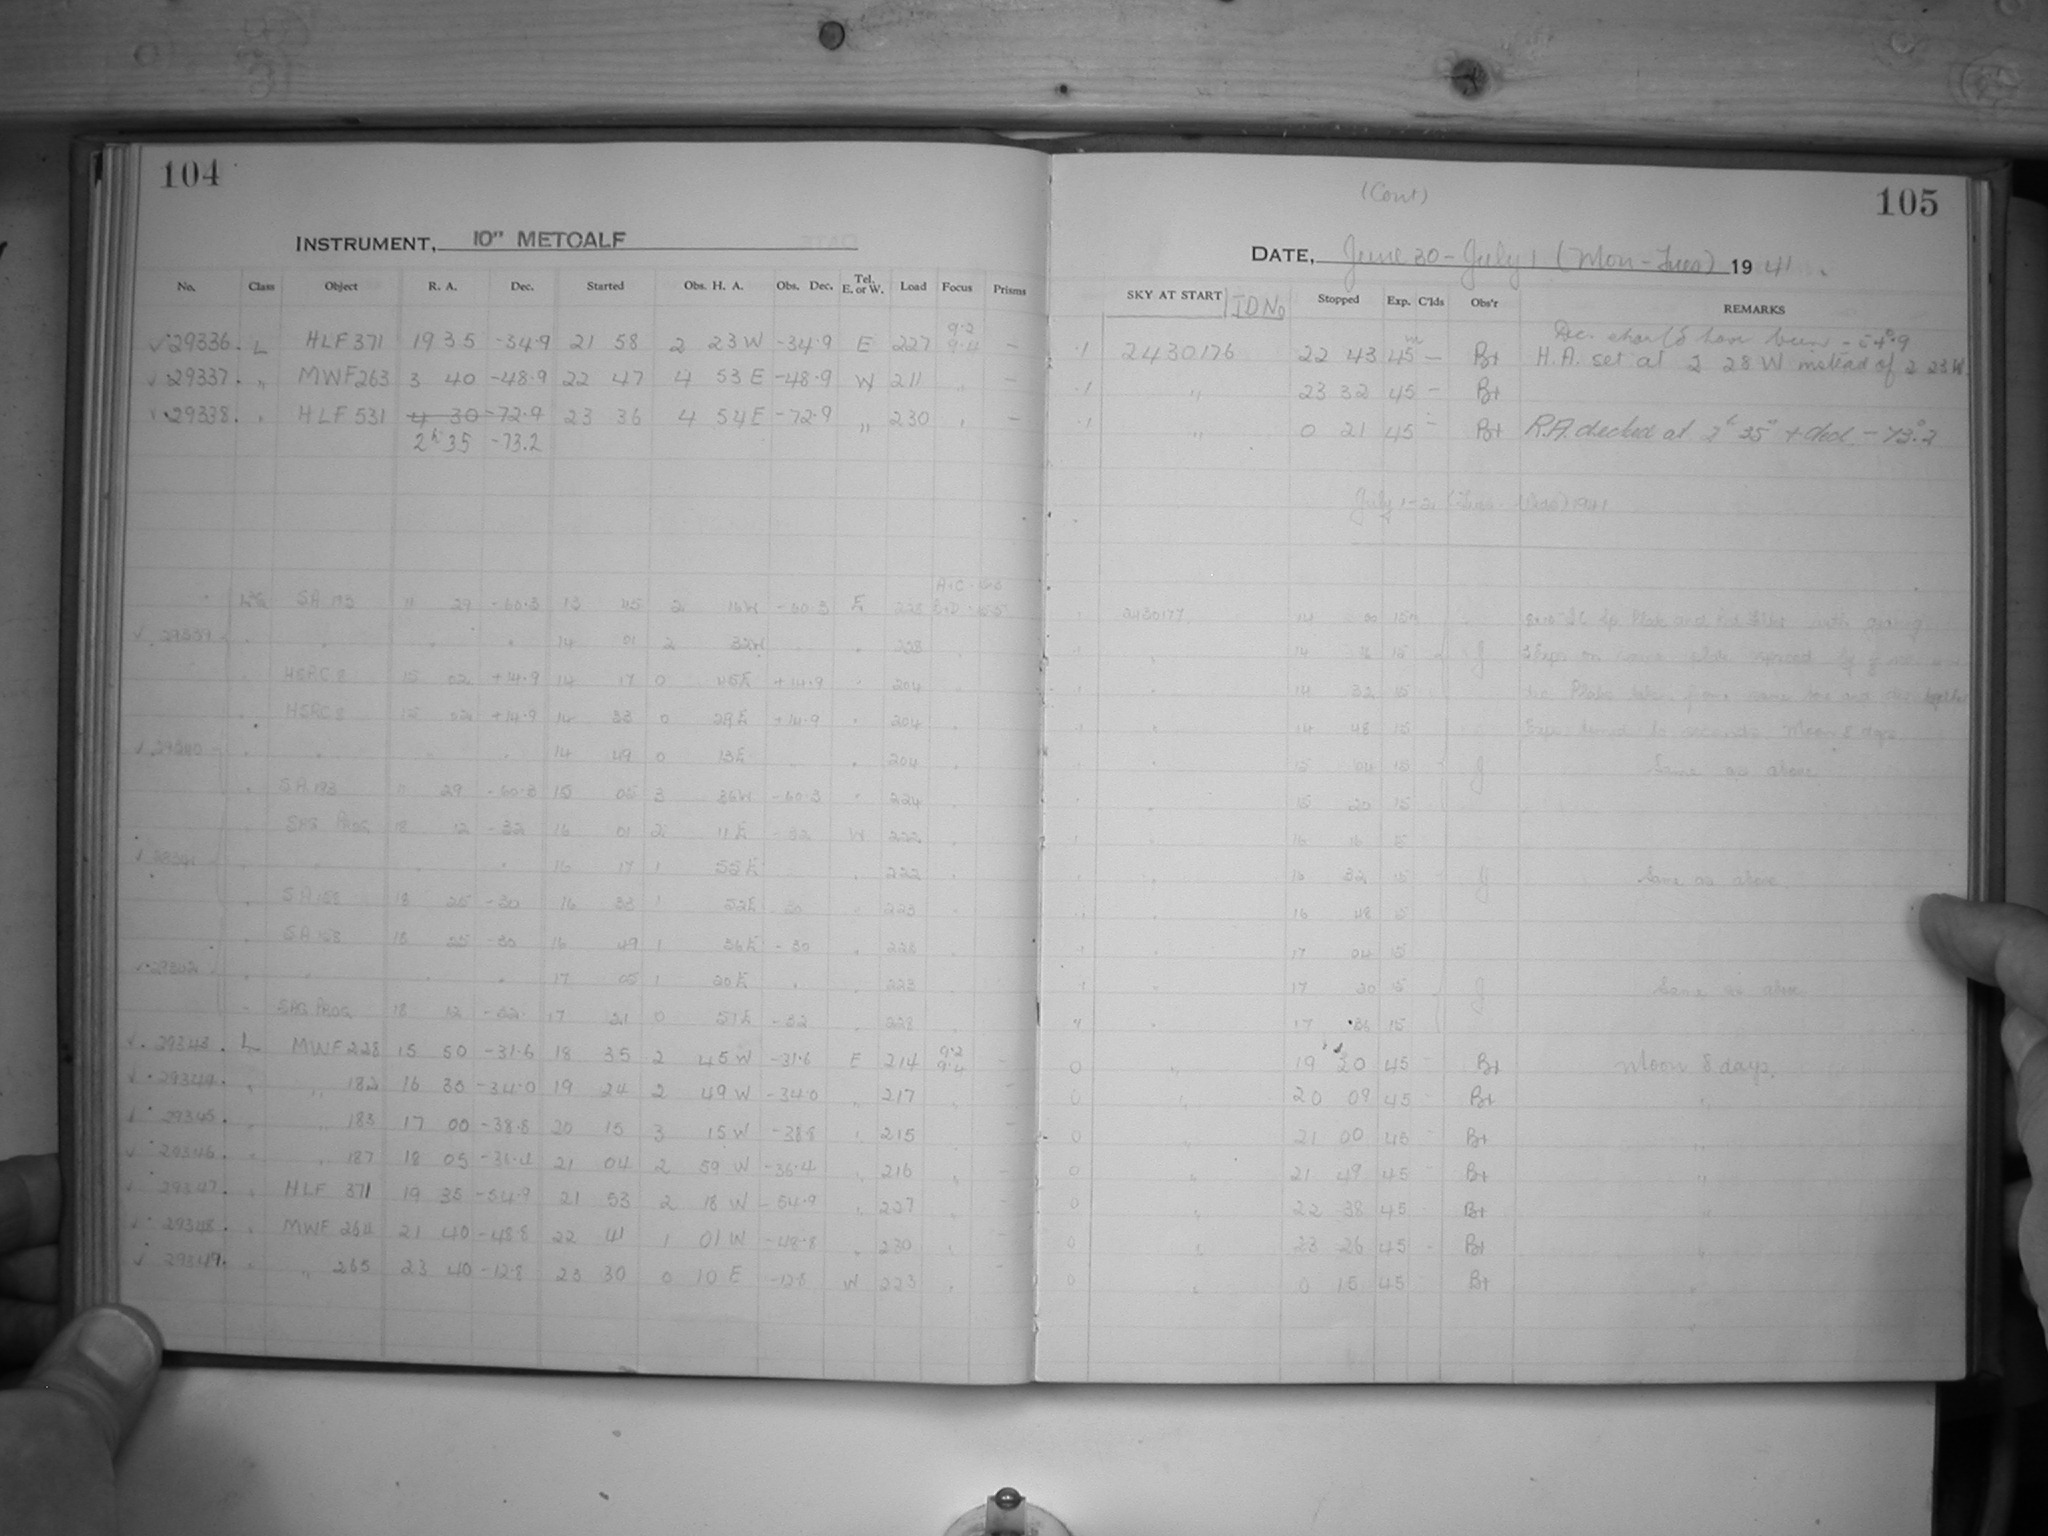 104
INSTRUMENT, 10" METCALF
No. Class Object R. A. Dec. Started Obs. H. A. Obs. Dec. Tel. E. or W. Load Focus Prisms
29336. L HLF 371 19 35 -34.9 21 58 2 23 W -34.9 E 227 9.2 9.4 -
29337. " MWF263 3 40 -48.9 22 47 4 53 E -48.9 W 211 " -
29338. " HLF 531 4 30 -72.9 23 36 4 54 E -72.9 " 230 " -
2h 35 -73.2
SA 193 11 29 -60.3 13 45 2 16W -60.3 E 228
29339 14 01 2 32W 228
HERC 8 15 02 +14.9 14 17 0 45E +14.9 204
HERC 8 15 02 +14.9 14 33 0 29E +14.9 204
29340 14 49 0 13E 204
SA 193 11 29 -60.3 15 05 3 36W -60.3 224
SAG PROG. 18 12 -32 16 01 2 11E -32 W 222
29341 16 17 1 55E 222
SA 158 18 25 -30 16 33 1 52E -30 223
SA 158 18 25 -30 16 49 1 36E -30 223
29342 17 05 1 20E 223
SAG PROG. 18 12 -32 17 21 0 51E -32 228
29343. L MWF 228 15 50 -31.6 18 35 2 45 W -31.6 E 214 9.2 9.4 -
29344. " " 182 16 35 -34.0 19 24 2 49 W -34.0 " 217 " -
29345. " " 183 17 00 -38.8 20 15 3 15 W -38.8 " 215 -
29346. " " 187 18 05 -36.4 21 04 2 59 W -36.4 " 216 " -
29347. " HLF 371 19 35 -54.9 21 53 2 18 W -54.9 " 227 " -
29348. " MWF 264 21 40 -48.8 22 41 1 01 W -48.8 " 230 " -
29349. " " 265 23 40 -12.8 23 30 0 10 E -12.8 W 223 " -
(Cont) 105
DATE, June 30 - July 1 (Mon - Tues) 1941.
SKY AT START IDNo Stopped Exp. C'lds Obs'r REMARKS
Dec. should have been -54°.9
.1 2430176 22 43 45m - Bt H.A. set at 2 28 W instead of 2 23 W.
.1 " 23 32 45 - Bt
.1 " 0 21 45 - Bt R.A. checked at 2h 35m + decl. -73°.2
July 1-2 (Tues - Wed) 1941
2430177 14 00 15m
14 16 15 J
14 32 15
14 48 15 Moon 8 days
15 04 15 J Same as above
15 20 15
16 16 15
16 32 15 J Same as above
16 48 15
17 04 15
17 20 15 J Same as above
17 36 15
0 " 19 20 45 - Bt Moon 8 days.
0 " 20 09 45 - Bt "
0 " 21 00 45 - Bt "
0 " 21 49 45 - Bt "
0 " 22 38 45 - Bt "
0 " 23 26 45 - Bt "
0 " 0 15 45 Bt "